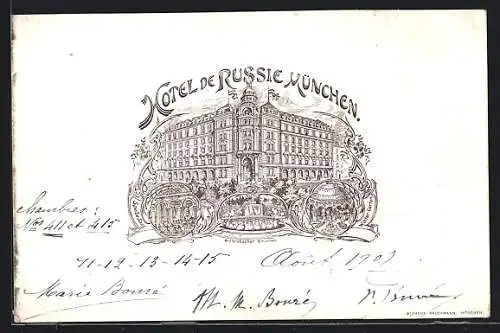 HOTEL DE RUSSIE MÜNCHEN.
Wittelsbacher Brunnen
Chambres:
Nos 411 et 415
11-12-13-14-15 Août 1902
Marie Bouré
M. M. Bouré